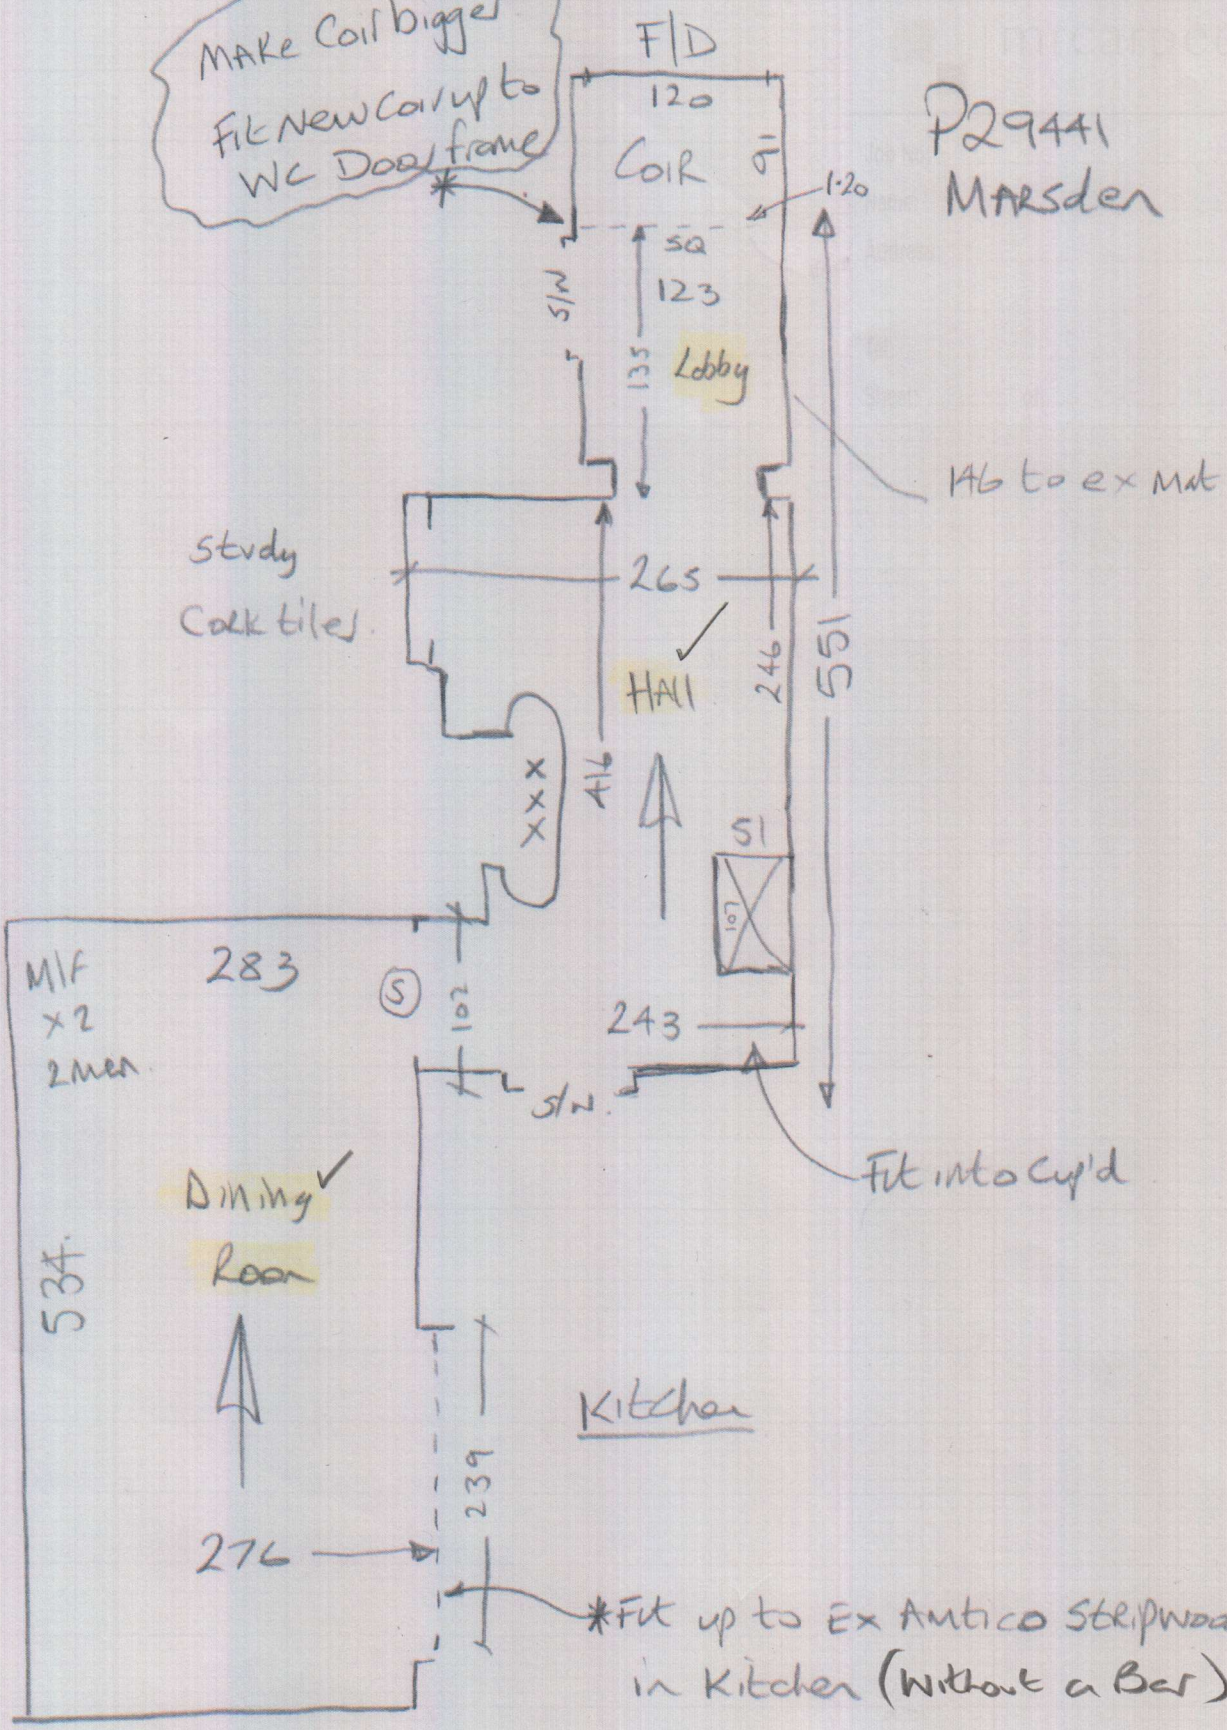 MAKE Coir bigger
Fit New Coir up to
WC Door frame
*
F/D
120
COIR
91
1.20
P29441
MARSden
SQ
123
S/N
135
Lobby
146 to ex Mat
Study
Cork tiles
265
HALL
246
551
416
XXX
51
107
283
M/F
x2
2 men
S
102
243
S/N.
Fit into Cup'd
Dining
Room
534
Kitchen
239
276
*Fit up to Ex Amtico Stripwoo
in Kitchen (Without a Bar)